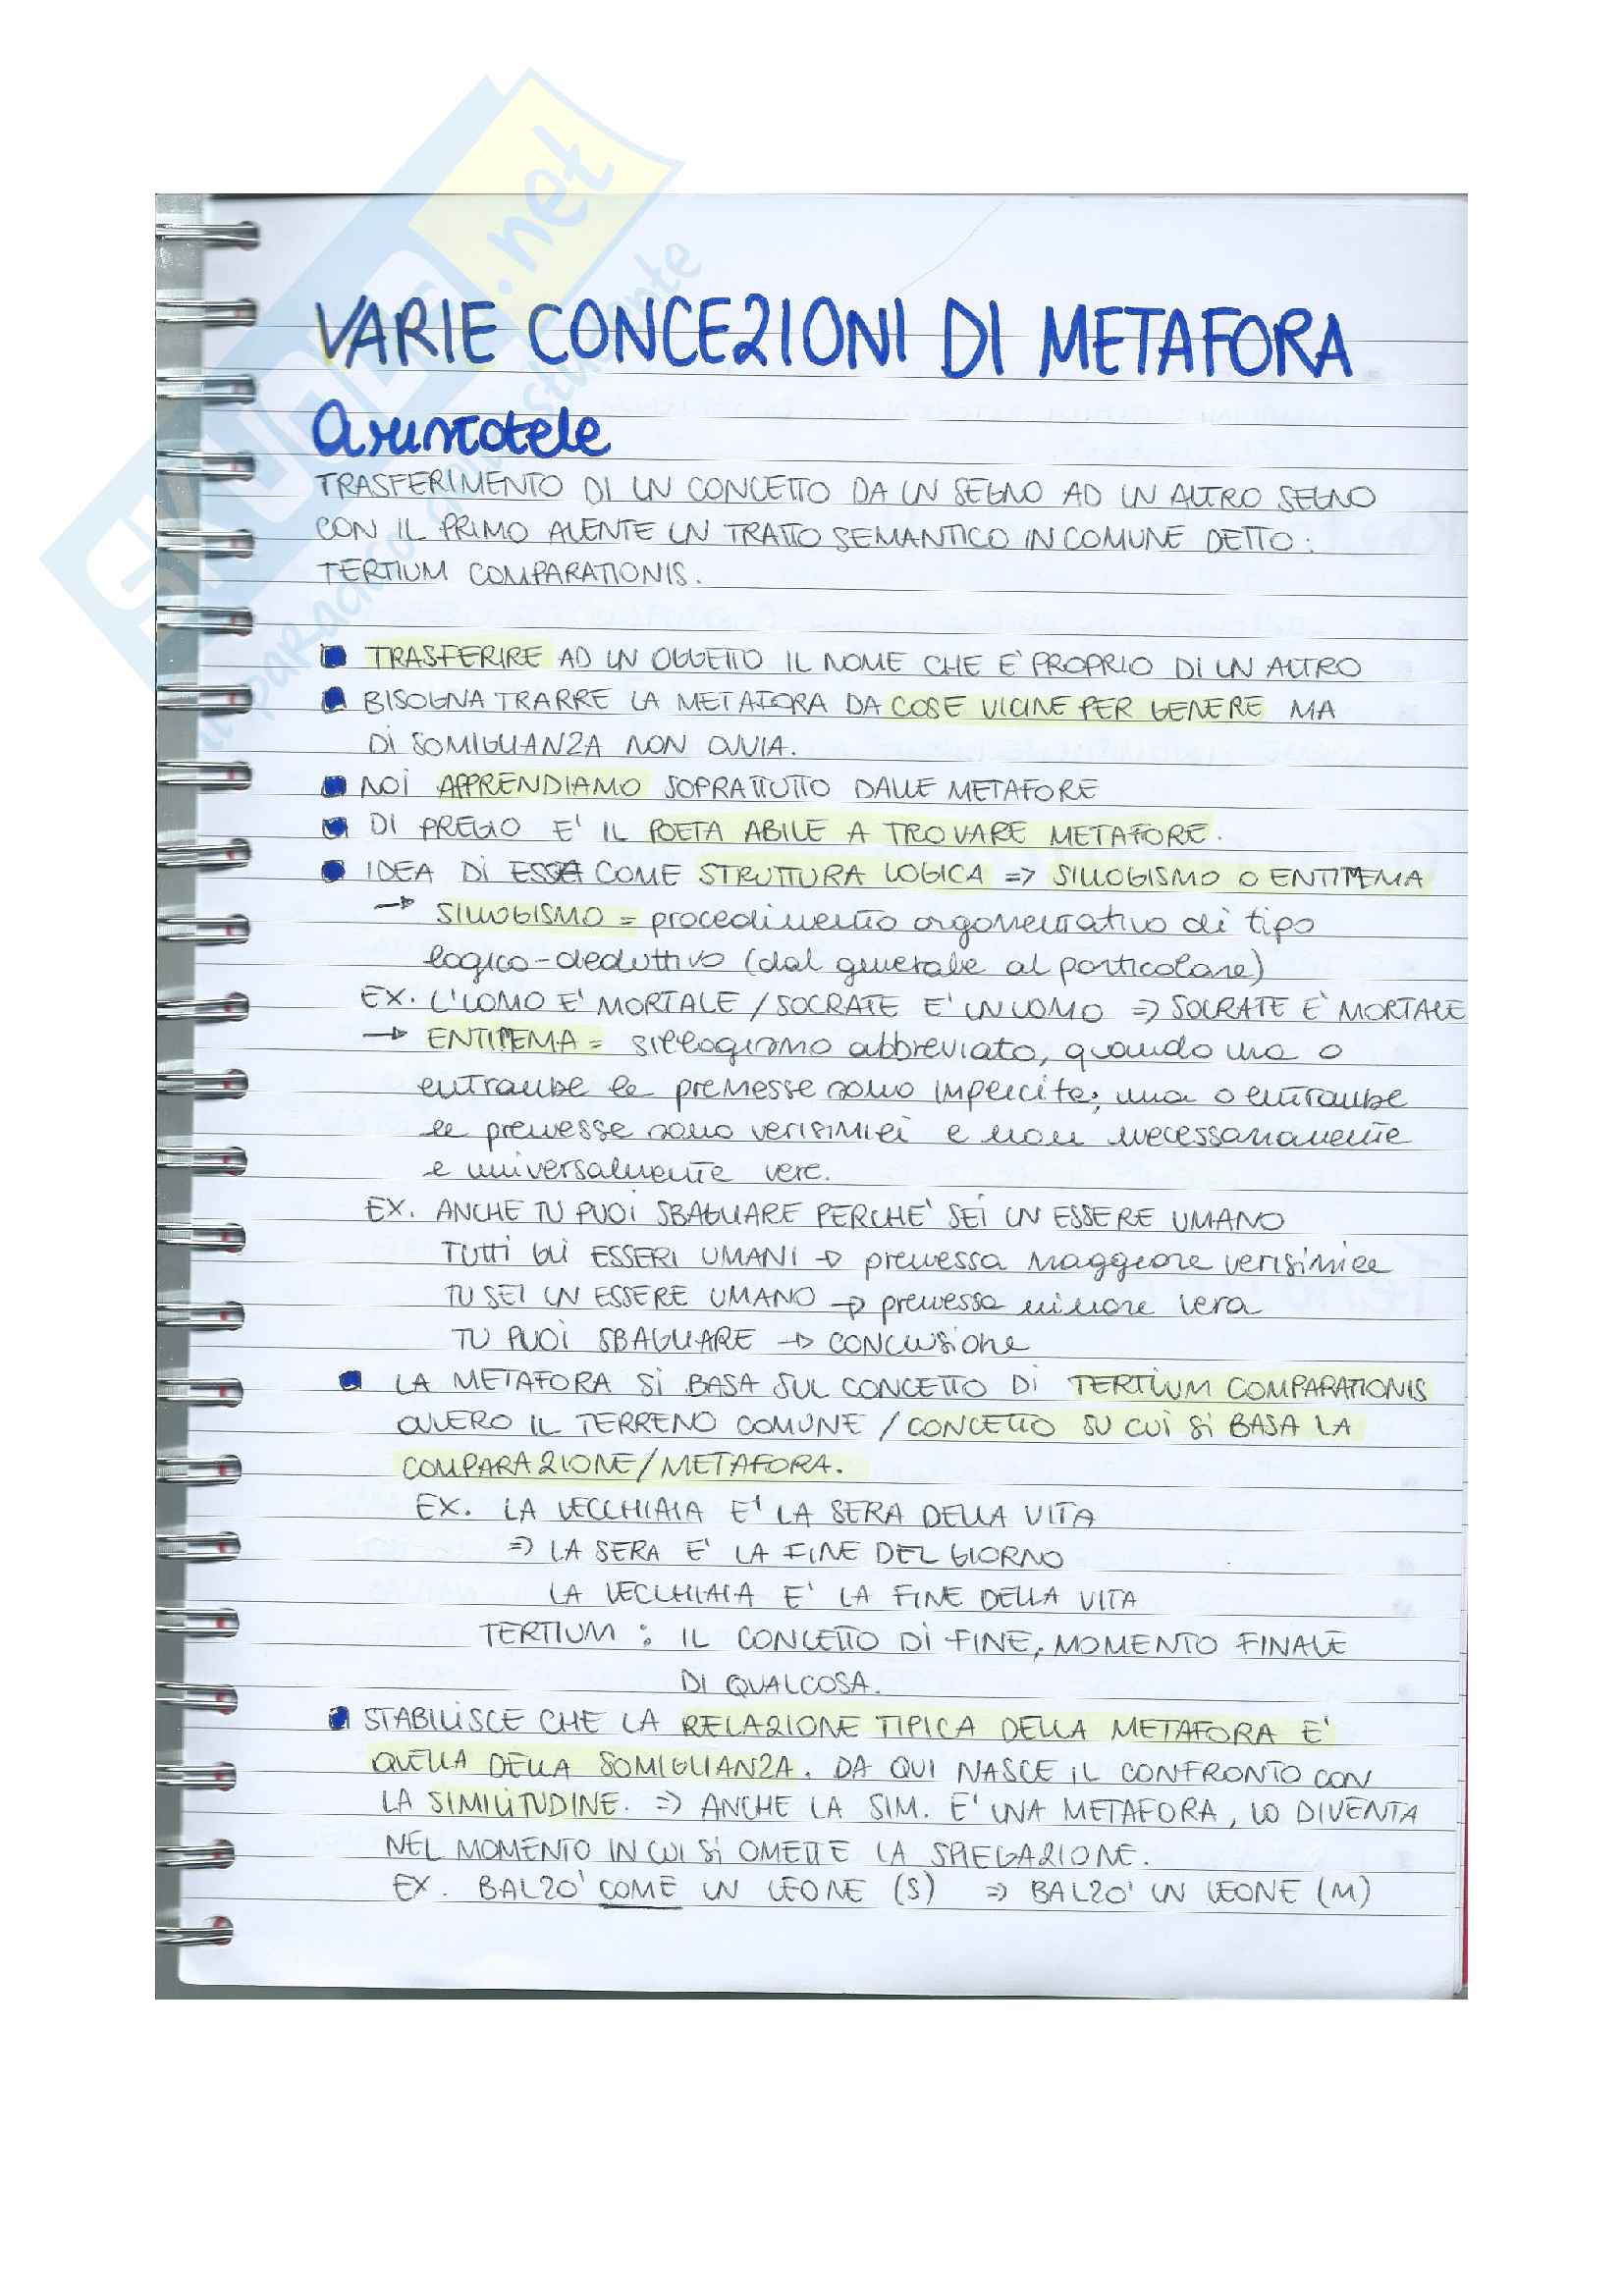 SKUOLA.net
il paradiso dello studente
VARIE CONCEZIONI DI METAFORA
Aristotele
TRASFERIMENTO DI UN CONCETTO DA UN SEGNO AD UN ALTRO SEGNO
CON IL PRIMO AVENTE UN TRATTO SEMANTICO IN COMUNE DETTO:
TERTIUM COMPARATIONIS.
TRASFERIRE AD UN OGGETTO IL NOME CHE E' PROPRIO DI UN ALTRO
BISOGNA TRARRE LA METAFORA DA COSE VICINE PER GENERE MA
DI SOMIGLIANZA NON OVVIA.
NOI APPRENDIAMO SOPRATTUTTO DALLE METAFORE
DI PREGIO E' IL POETA ABILE A TROVARE METAFORE.
IDEA DI ESSA COME STRUTTURA LOGICA => SILLOGISMO O ENTIMEMA
→ SILLOGISMO = procedimento argomentativo di tipo
logico-deduttivo (dal generale al particolare)
EX. L'UOMO E' MORTALE / SOCRATE E' UN UOMO => SOCRATE E' MORTALE
→ ENTIMEMA = sillogismo abbreviato, quando una o
entrambe le premesse sono implicite; una o entrambe
le premesse sono verisimili e non necessariamente
e universalmente vere.
EX. ANCHE TU PUOI SBAGLIARE PERCHE' SEI UN ESSERE UMANO
TUTTI GLI ESSERI UMANI → premessa maggiore verisimile
TU SEI UN ESSERE UMANO → premessa minore vera
TU PUOI SBAGLIARE → CONCLUSIONE
LA METAFORA SI BASA SUL CONCETTO DI TERTIUM COMPARATIONIS
OVVERO IL TERRENO COMUNE / CONCETTO SU CUI SI BASA LA
COMPARAZIONE/METAFORA.
EX. LA VECCHIAIA E' LA SERA DELLA VITA
=> LA SERA E' LA FINE DEL GIORNO
LA VECCHIAIA E' LA FINE DELLA VITA
TERTIUM: IL CONCETTO DI FINE, MOMENTO FINALE
DI QUALCOSA.
STABILISCE CHE LA RELAZIONE TIPICA DELLA METAFORA E'
QUELLA DELLA SOMIGLIANZA. DA QUI NASCE IL CONFRONTO CON
LA SIMILITUDINE. => ANCHE LA SIM. E' UNA METAFORA, LO DIVENTA
NEL MOMENTO IN CUI SI OMETTE LA SPIEGAZIONE.
EX. BALZO' COME UN LEONE (S) => BALZO' UN LEONE (M)